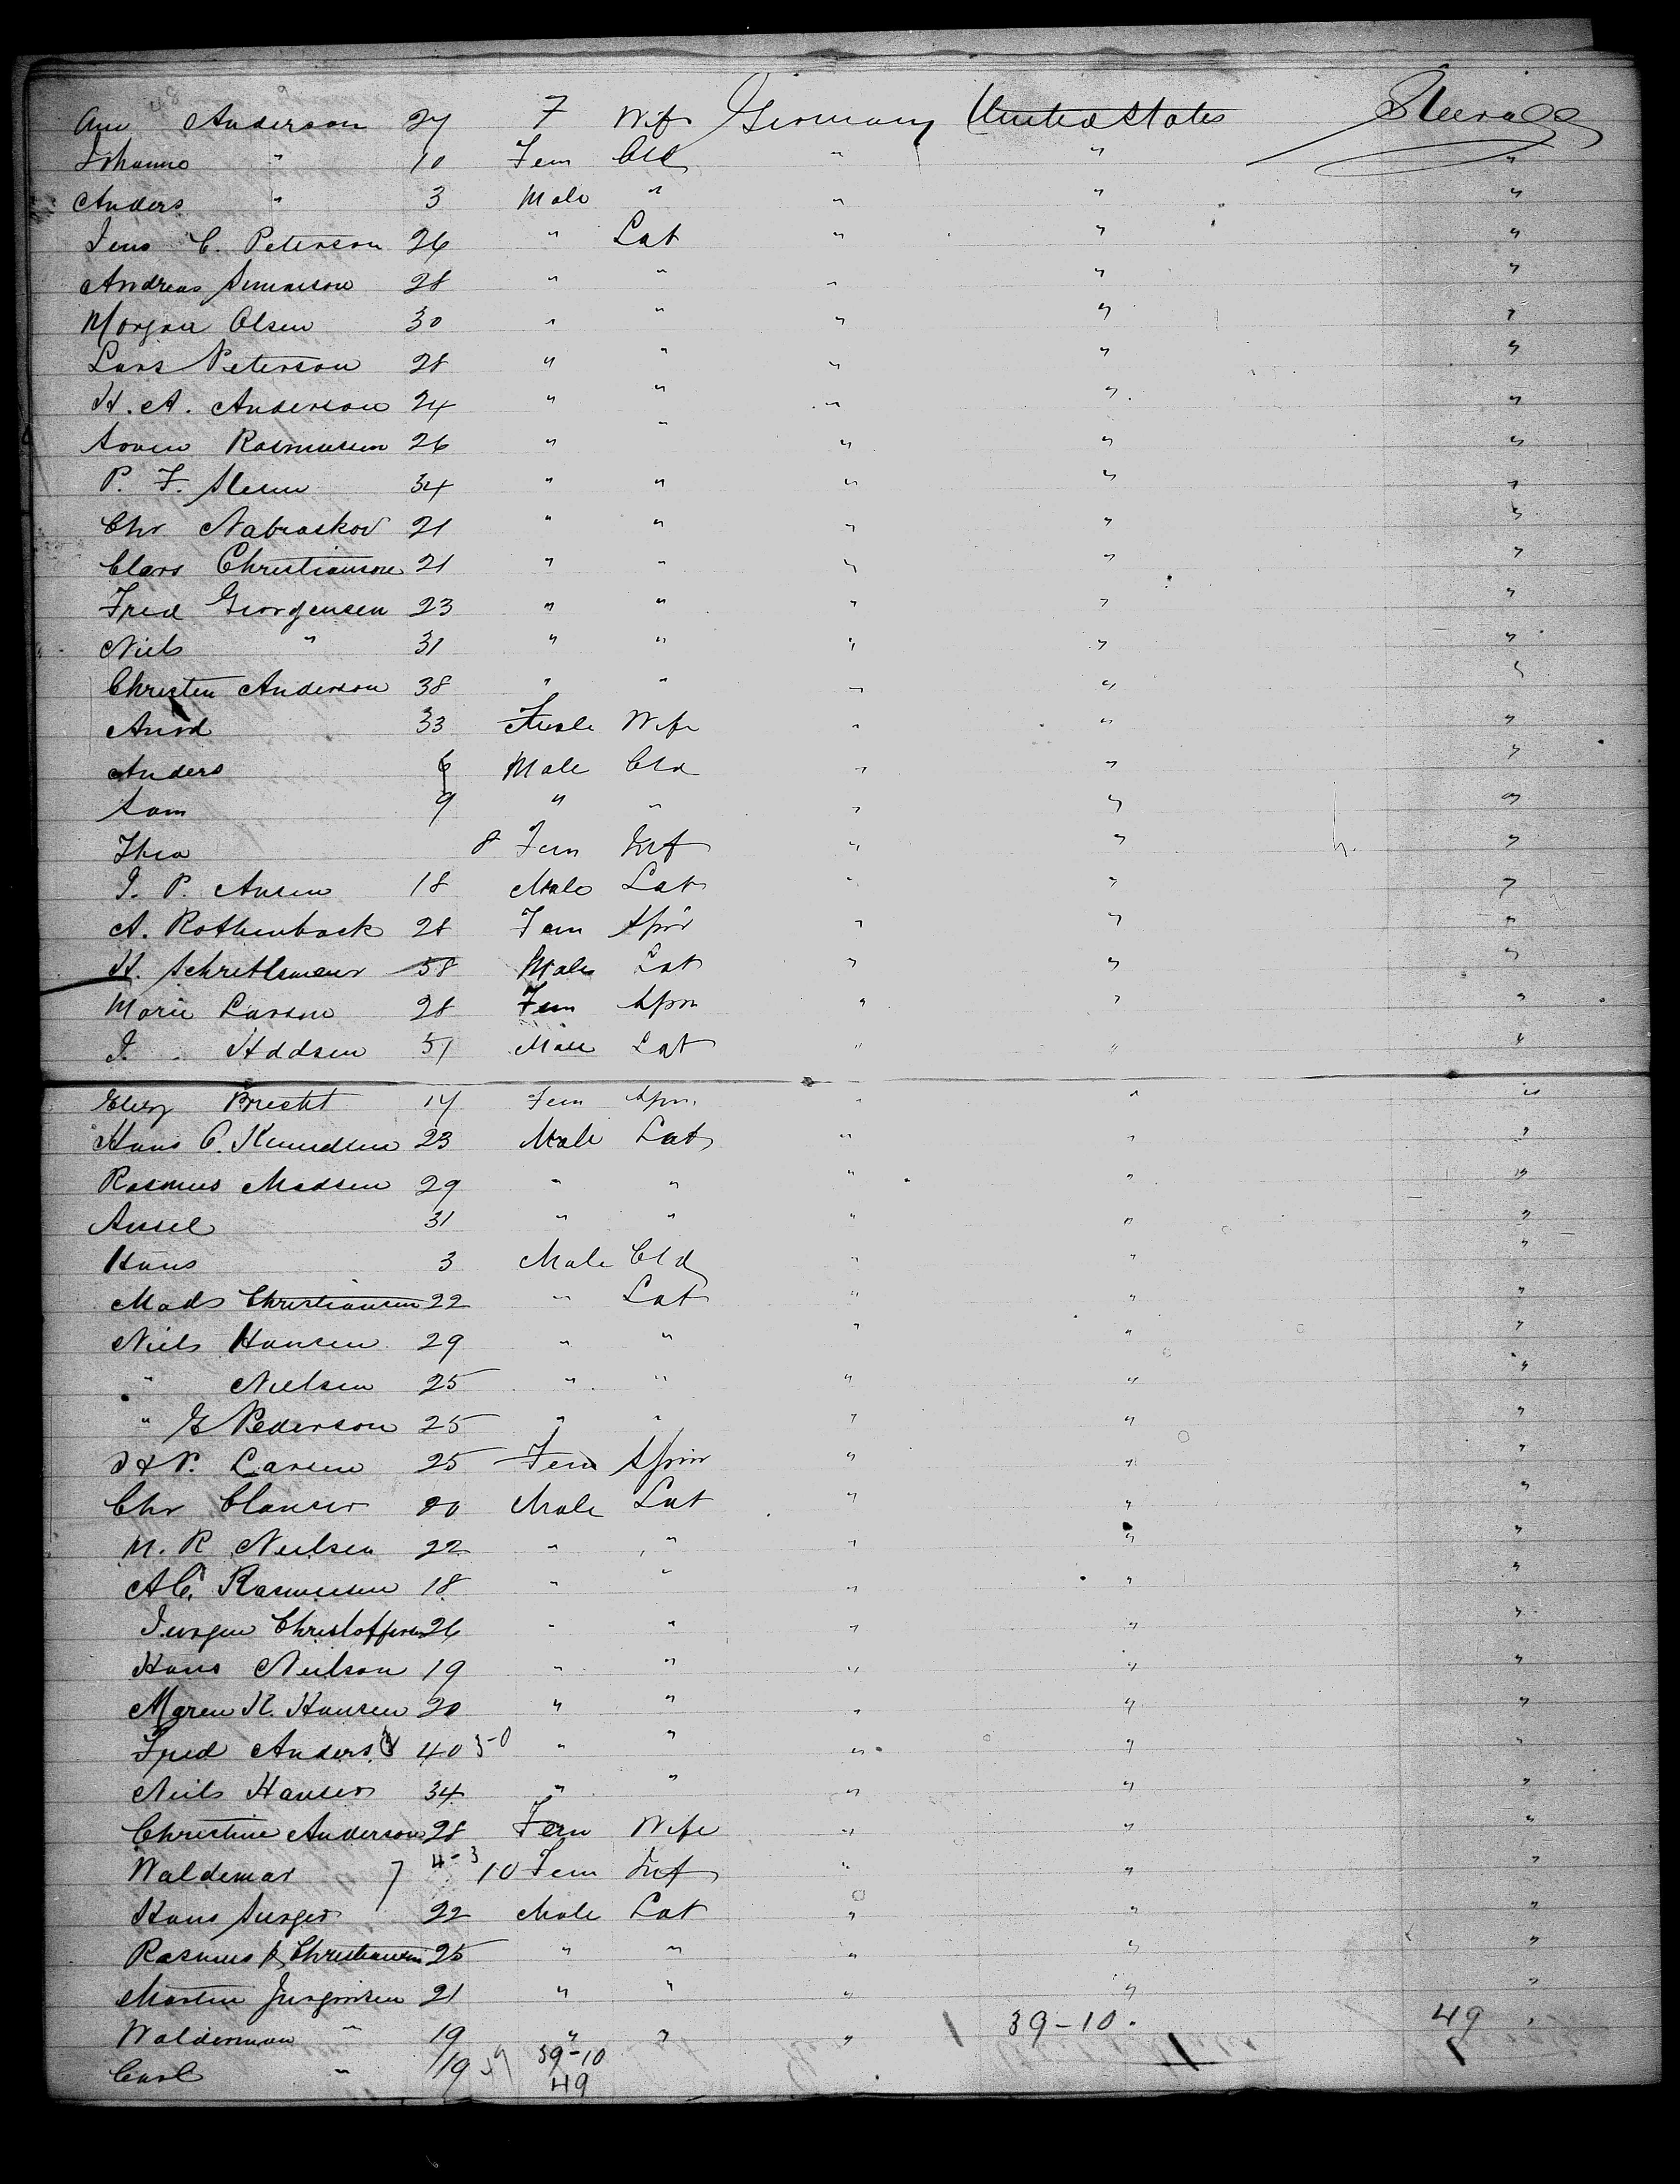 Ann Anderson 27 F Wife Germany United States Steerage
Johanne " 10 Fem Cld " " "
Anders " 3 Male " " " "
Jens C. Peterson 26 " Lab " " "
Andreas Simonson 28 " " " " "
Morgan Olsen 30 " " " " "
Lars Peterson 28 " " " " "
H. A. Anderson 24 " " " " "
Soren Rasmussen 26 " " " " "
P. F. 34 " " " " "
Chr Nabraskov 21 " " " " "
Claes Christianson 21 " " " " "
Fred Georgensen 23 " " " " "
Niels " 31 " " " " "
Christen Anderson 38 " " " " "
33 Female Wife " " "
Anders 6 Male Cld " " "
Sam 9 " " " " "
Thea 8 Fem Inf " " "
J. P. Ansen 18 Male Lab " " "
A. Rothenback 28 Fem Spin " " "
H. 58 Male Lab " " "
Marie Larson 28 Fem Spin " " "
J. Hddsen 51 Male Lab " " "
Eliz Brecht 14 Fem Spin " " "
Hans C. Knudsen 23 Male Lab " " "
Rasmus Madsen 29 " " " " "
Ansel 31 " " " " "
Hans 3 Male Cld " " "
Mads Christiansen 22 " Lab " " "
Niels Hansen 29 " " " " "
" Nielsen 25 " " " " "
" E Pederson 25 " " " " "
Larsen 25 Fem Spin " " "
Chr Clausen 20 Male Lab " " "
M. R Neilsen 22 " " " " "
A C. Rasmusen 18 " " " " "
Jurgen Christoffersen 26 " " " " "
Hans Neilson 19 " " " " "
Maren K. Hansen 20 " " " " "
Fred Anders 40 50 " " " " "
Neils Hansen 34 " " " " "
Christine Anderson 28 Fem Wife " " "
Waldemar 7 4-3 10 Fem Inf " " "
Hans 22 Male Lab " " "
Rasmus Christiansen 25 " " " " "
Martin Jurginsen 21 " " " " "
Walderman " 19 " " " 39-10. 49 "
Carl " 19 39-10
49